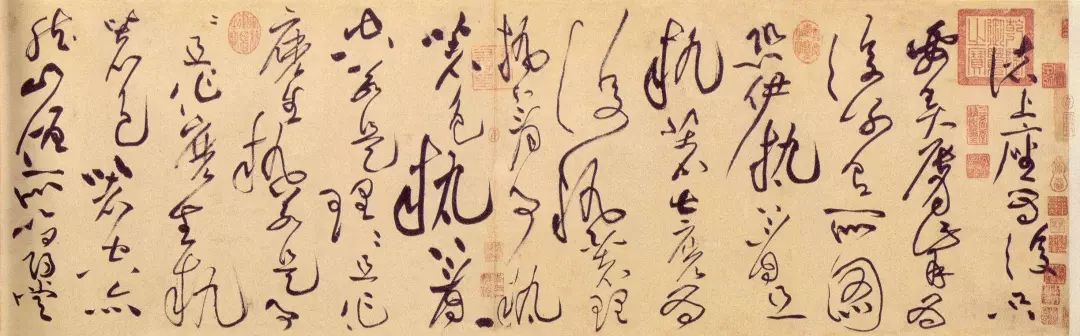 諸上座為復只
要弄脣觜為
復別有所圖
恐伊執著且
執著甚麼為
復執著理
執著事執
著色執著
空若是理理且作
麼生執若是事
事且作麼生執
著色著空亦
然山僧所以尋常